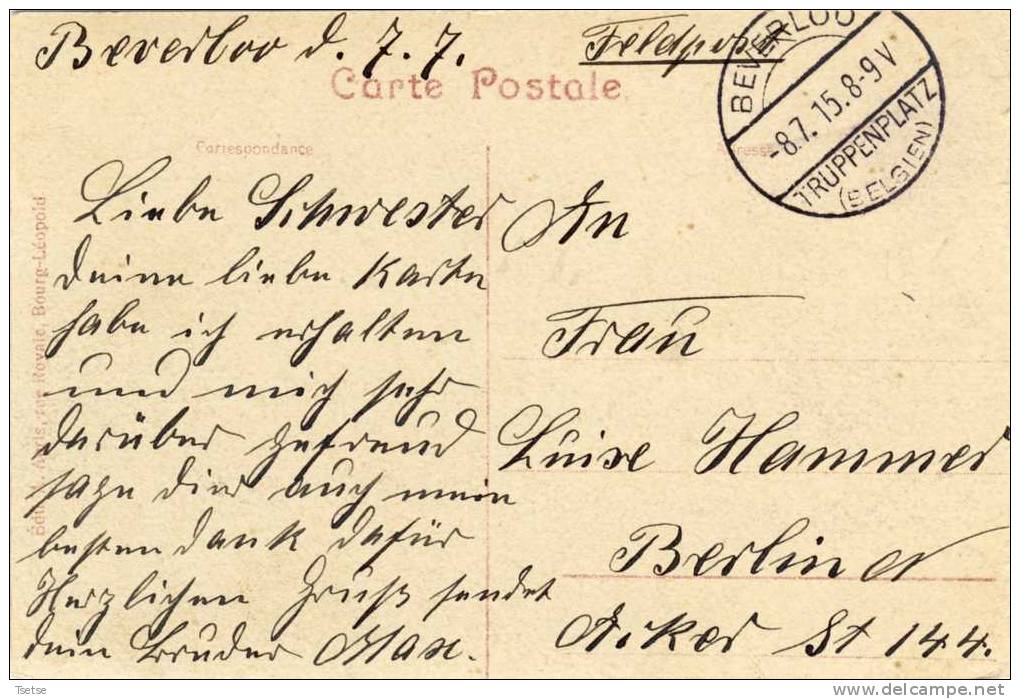 Beverloo d. 7. 7.
Feldpost
Carte Postale
BEVERLOO
-8.7.15.8-9V
TRUPPENPLATZ
(BELGIEN)
Correspondance
Liebe Schwester
deine liebe Karte
habe ich erhalten
und mich sehr
darüber gefreud
sage dir auch mein
besten dank dafür
Herzlichen Gruß sendet
dein Bruder Max.
An
Frau
Luise Hammer
Berlin N
Acker St 144.
rue Royale, Bourg-Léopold
Tsetse
delcampe.net